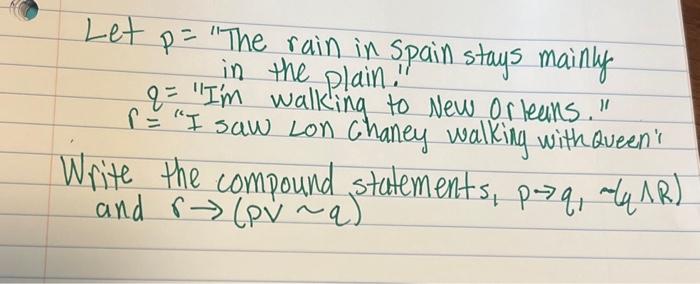 Let p = "The rain in Spain stays mainly
in the plain."
q = "I'm walking to New Orleans."
r = "I saw Lon Chaney walking with Queen"
Write the compound statements, p→q, ~(q ∧ R)
and r → (p ∨ ~q)